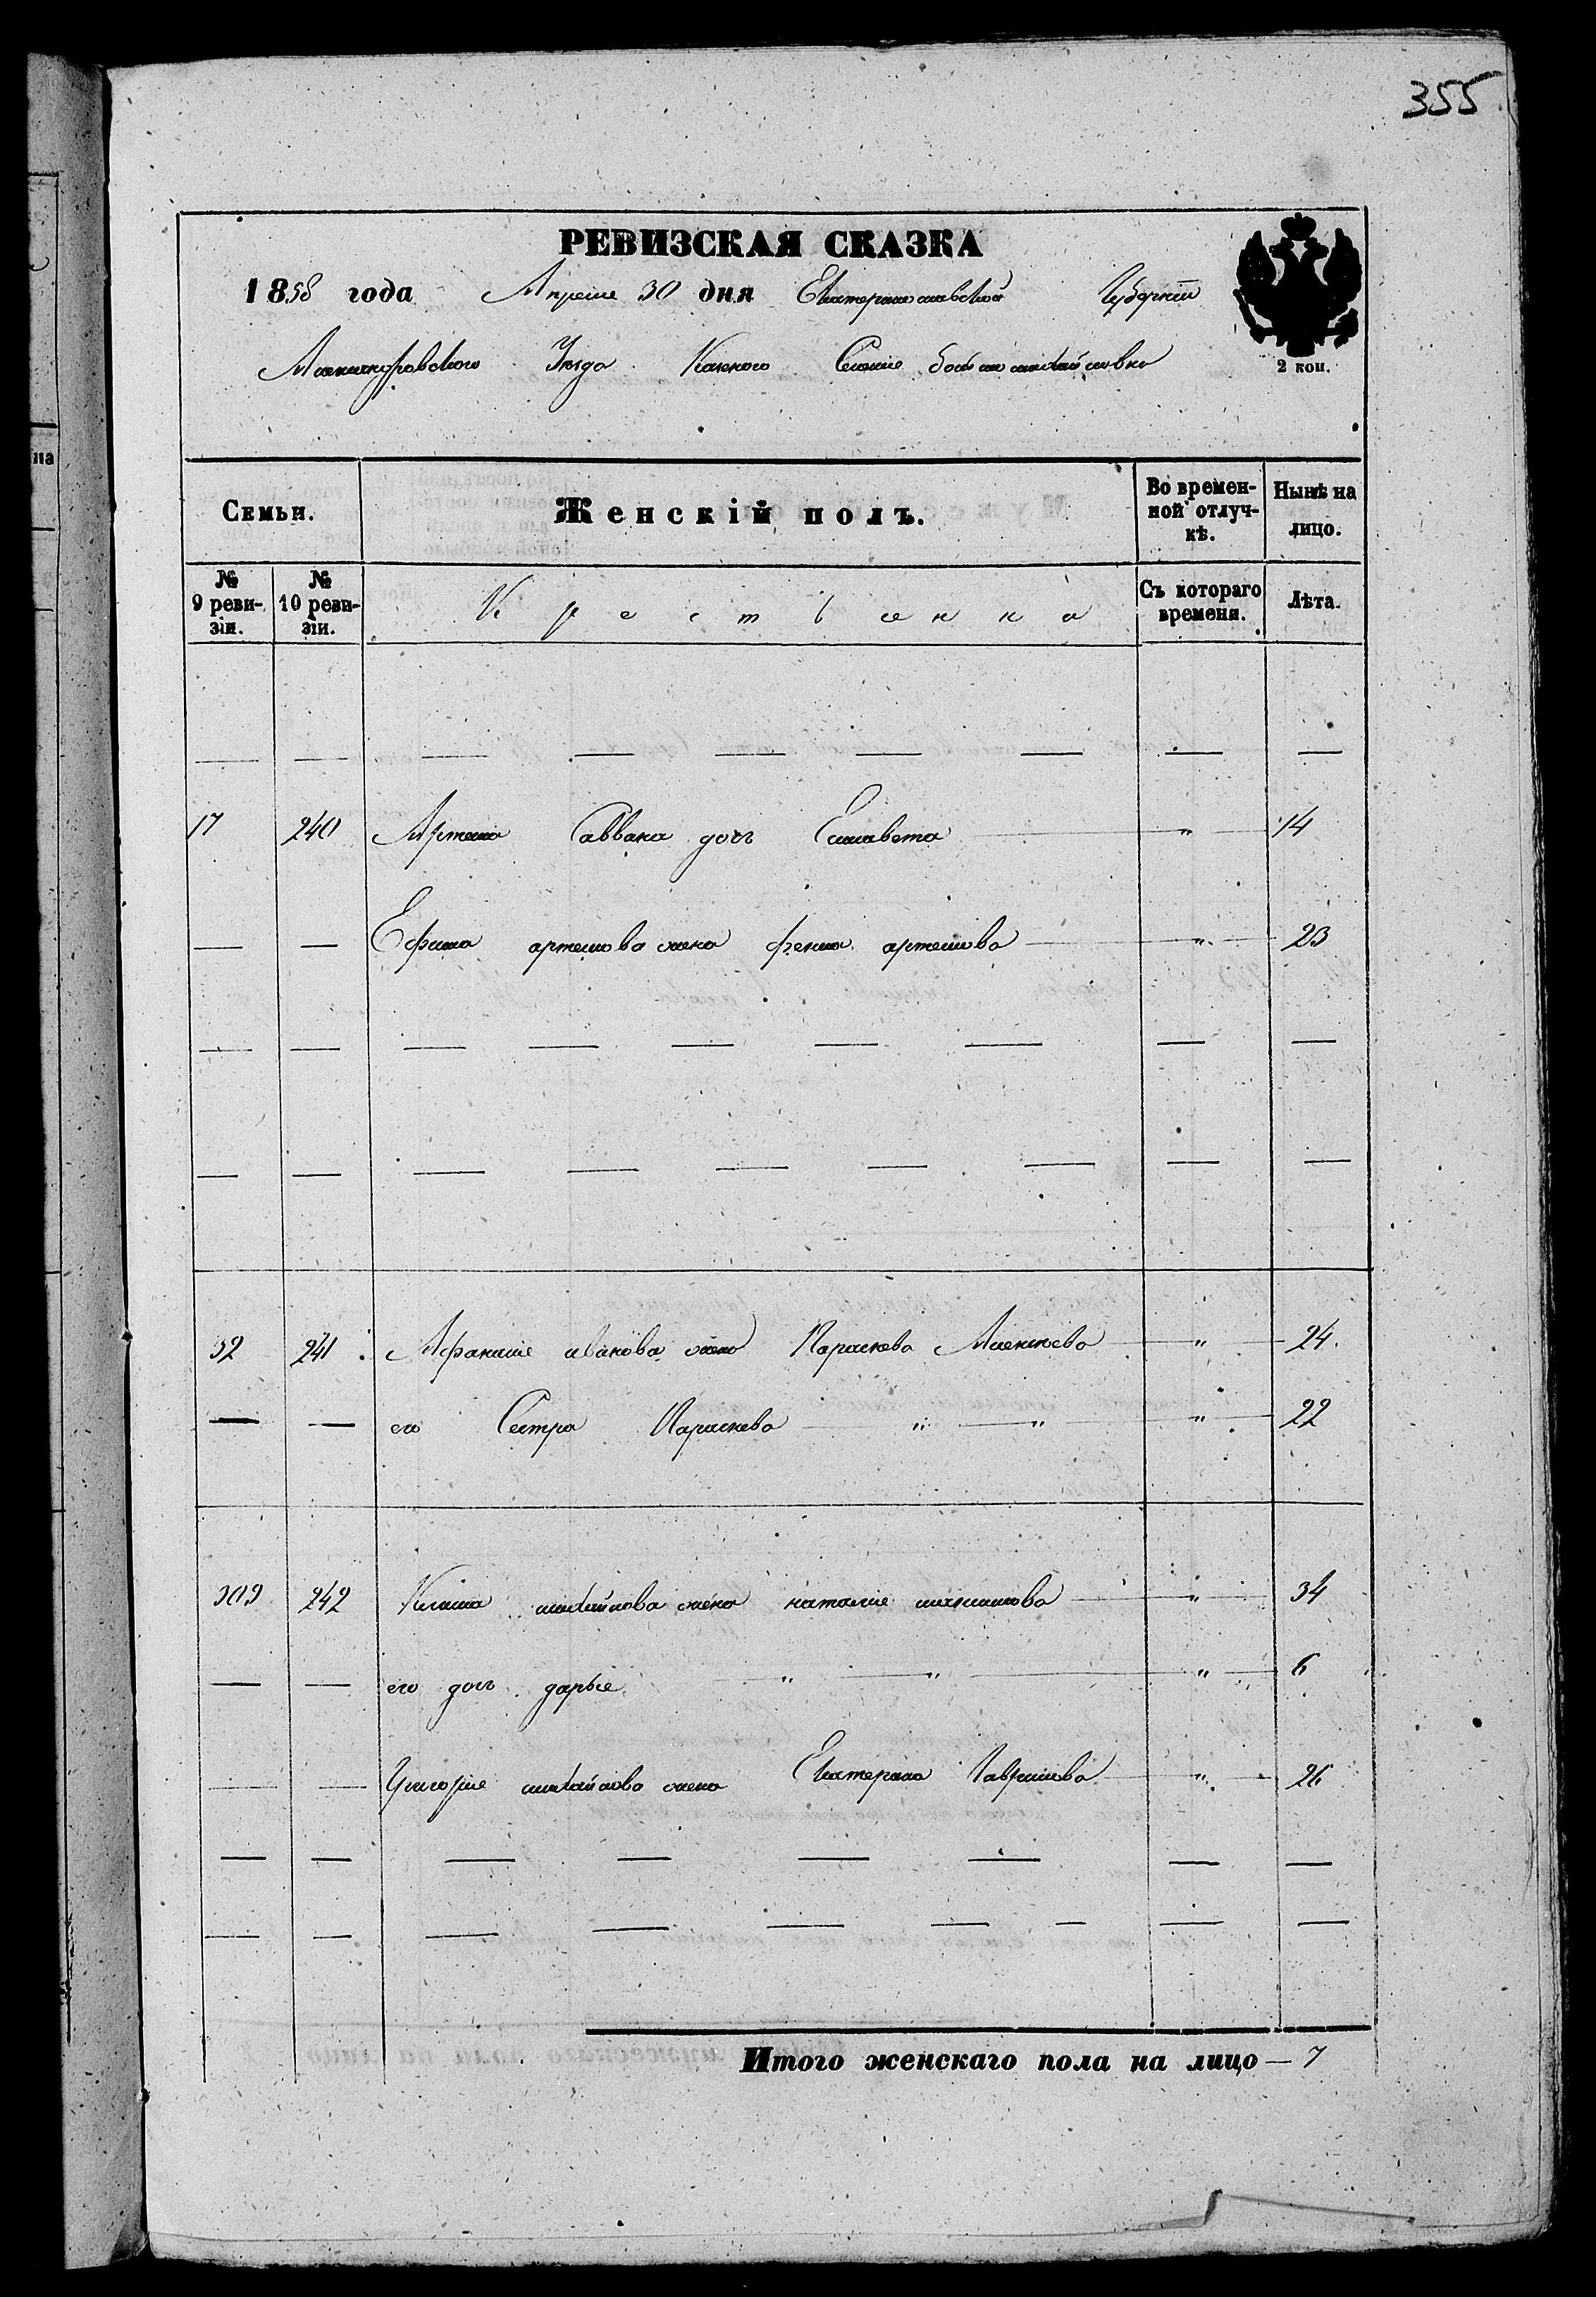 355
РЕВИЗСКАЯ СКАЗКА
1858 года Апреля 30 дня Екатеринославской Губерніи
Александровскаго Уезда Казеного Селения больше михайловки
2 коп.
на
Семьи.
Женскій полъ.
Во временной отлучкѣ.
Нынѣ на лицо.
№ 9 ревизіи.
№ 10 ревизіи.
Съ котораго времени.
Лѣта.
17 240 Артема Саввина дочь Елисавета " 14
— — Ефима артемова жена фекла артемова " 23
52 241 Афанасия иванова жена Параскева Алексеева " 24
— — его Сестра Параскева " " " 22
309 242 Клима михайлова жена наталия максимова " 34
— — его дочь дарья " " " 6
— — Григория михайлова жена Екатерина Гаврилова " 26
Итого женскаго пола на лицо — 7